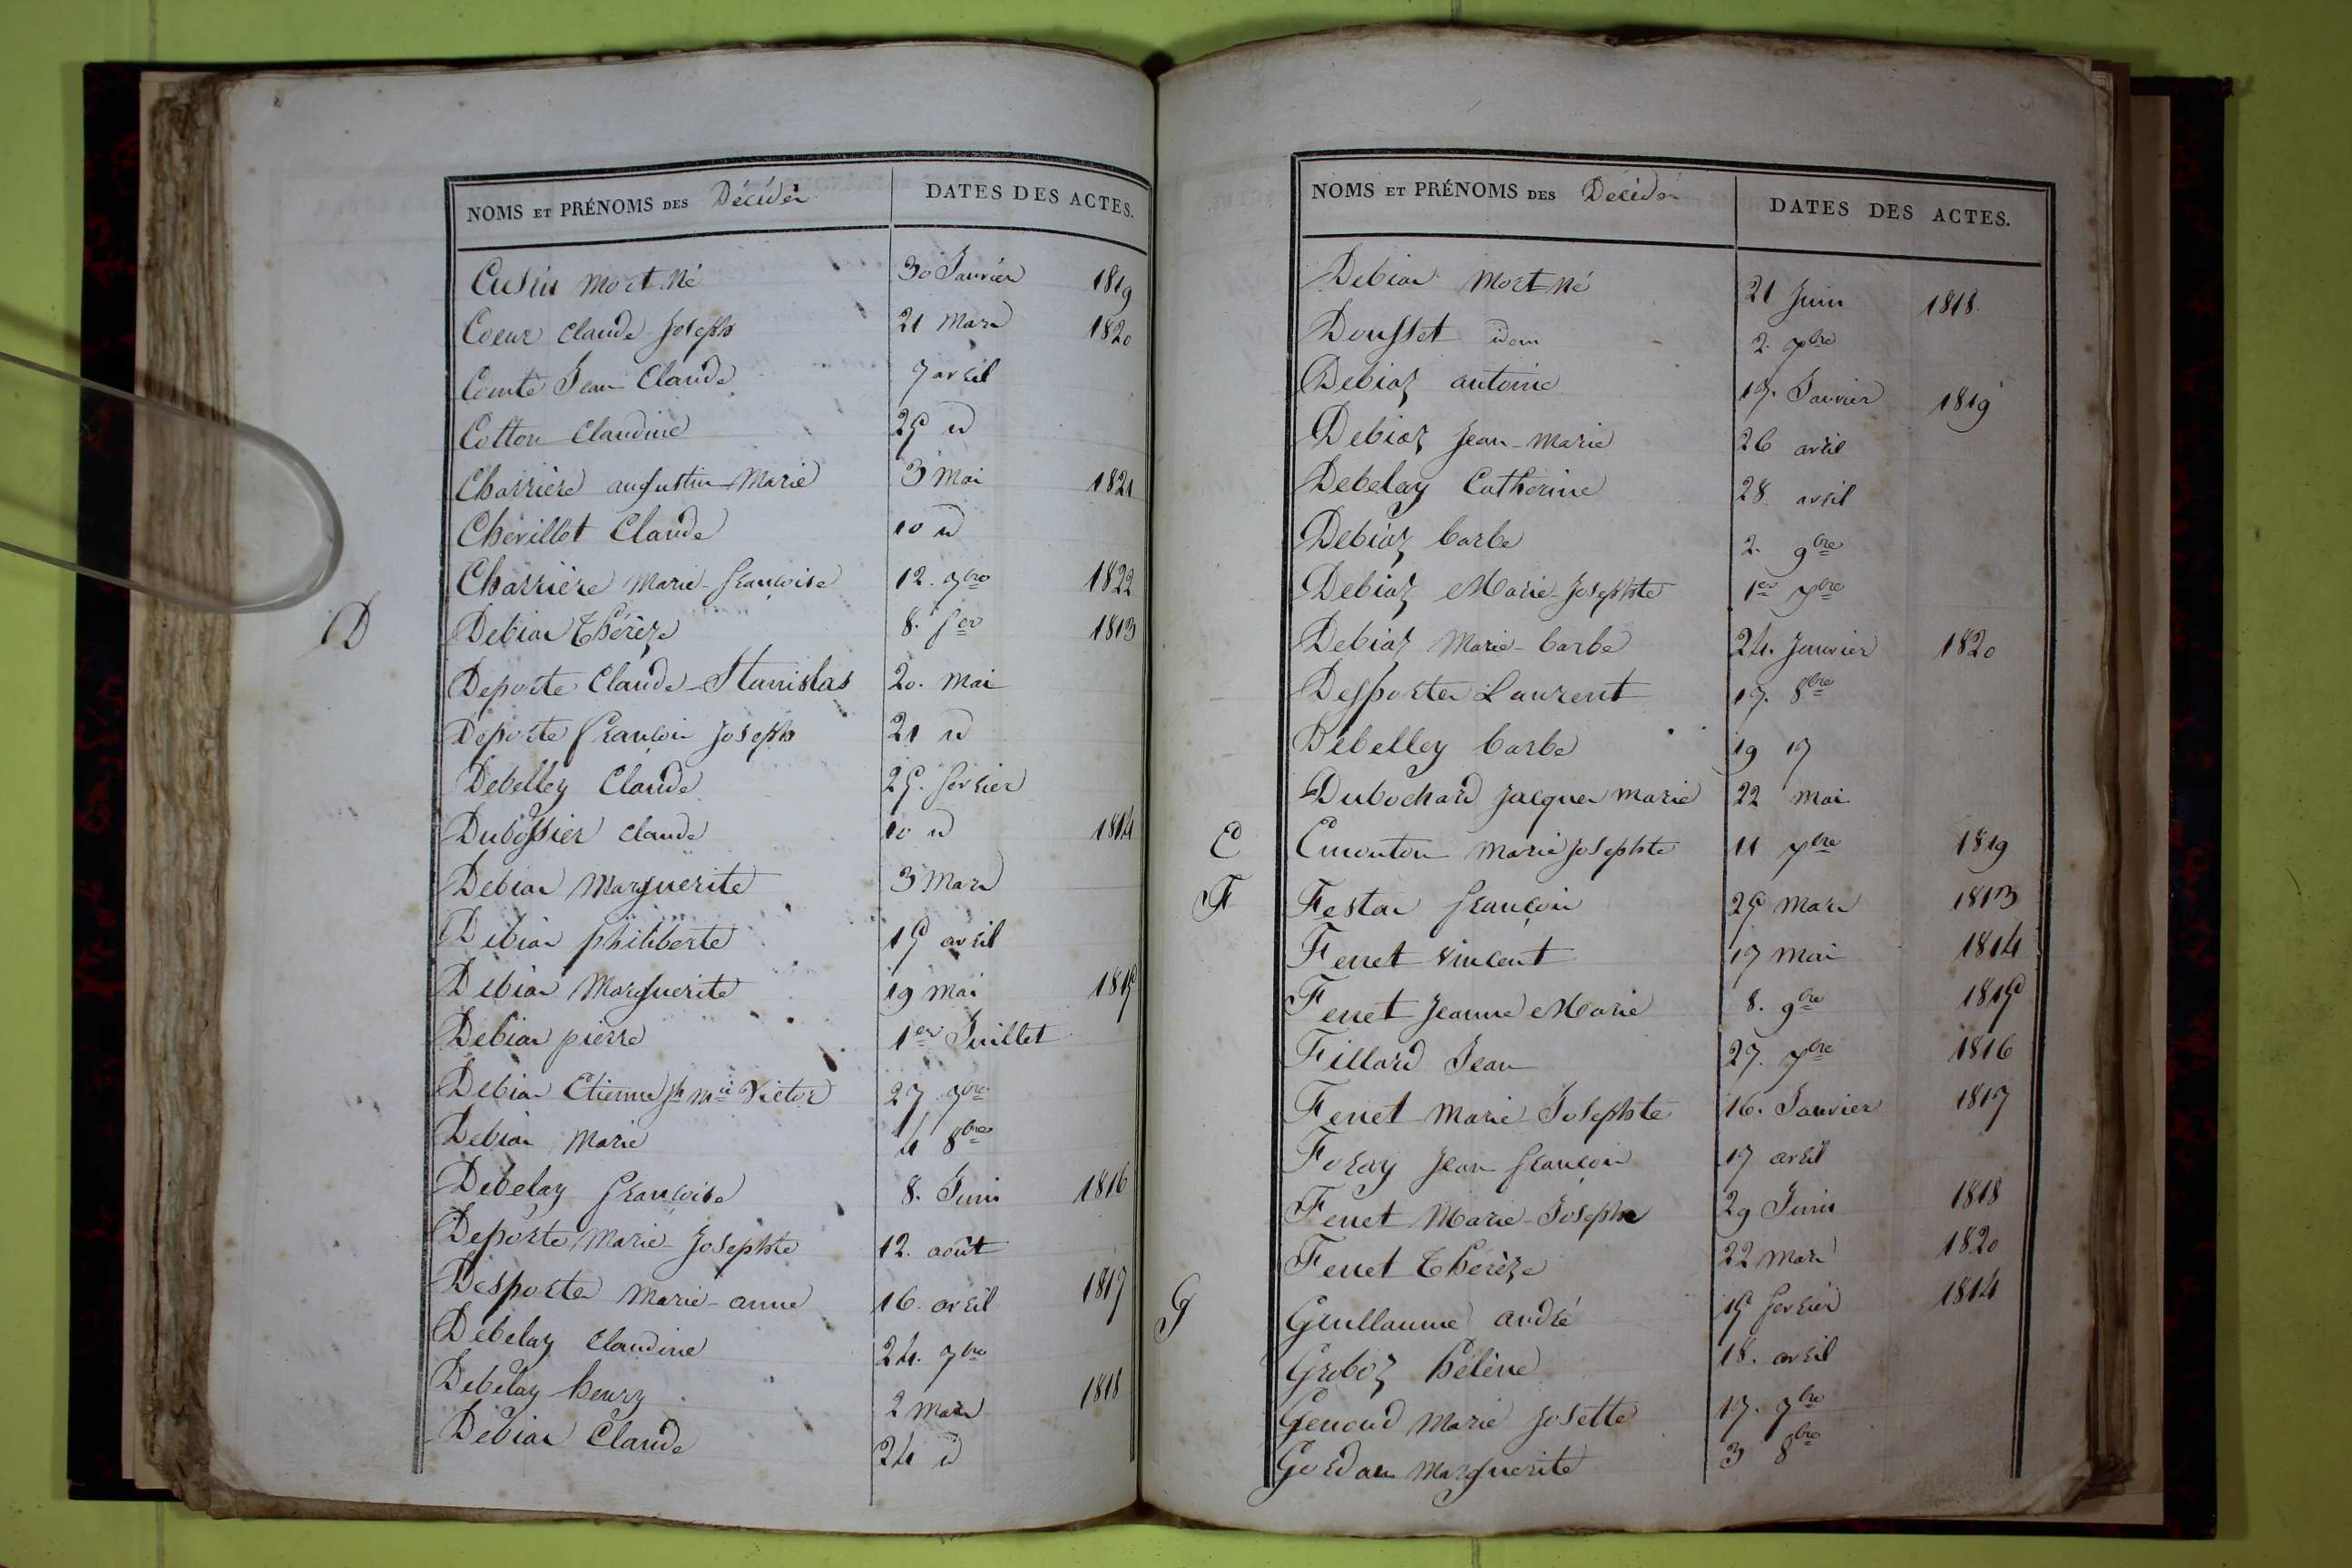 NOMS ET PRÉNOMS DES Décédés DATES DES ACTES.
Cusin Mort Né 30 Janvier 1819
Coeur Claude Joseph 21 Mars 1820
Comte Jean Claude 7 avril
Cotton Claudine 25 id
Charrière augustin Marie 3 Mai 1821
Chevillot Claude 10 id
Charrière Marie françoise 12. 7bre 1822
D Debias Thérèze 8. fer 1813
Deporte Claude-Stanislas 20. Mai
Deporte françois Joseph 21 id
Debelley Claude 25. fevrier
Dubossier Claude 10 id 1814
Debias Marguerite 3 Mars
Debias philiberte 15 avril
Debias Marguerite 19 Mai 1815
Debias pierre 1er Juillet
Debias Etienne Jh Mie Victor 27 7bre
Debias Marie 4 8bre
Debelay françoise 8. Juin 1816
Deporte Marie-Josephte 12. août
Desportes Marie-anne 16. avril 1817
Debelay Claudine 24. 7bre
Debelay henry 2 Mars 1818
Debias Claude 24 id
NOMS ET PRÉNOMS DES Décédés DATES DES ACTES.
Debias Mort Né 21 Juin 1818.
Dousset idem 2. 7bre
Debiaz antoine 17. Janvier 1819
Debiaz Jean-Marie 26 avril
Debelay Catherine 28. avril
Debiaz barbe 2. 9bre
Debiaz Marie-Josephte 1er 7bre
Debiaz Marie-barbe 24. Janvier 1820
Desportes Laurent 17. 8bre
Debelley barbe 19
Dubochard Jacques Marie 22 Mai
E Emonton Marie Josephte 11 7bre 1819
F Festas françois 25 Mars 1813
Fenet Vincent 17 Mai 1814
Fenet Jeanne Marie 8. 9bre 1815
Fillard Jean 27. 7bre 1816
Fenet Marie Josephte 16. Janvier 1817
Foray Jean françois 17 avril
Fenet Marie-Josephe 29 Juin 1818
Fenet Thérèze 22 Mars 1820
G Guillaume andré 15 fevrier 1814
Groboz hélène 18. avril
Genoud Marie Josette 17. 7bre
Gordan Marguerite 3 8bre